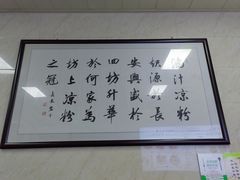 汁凉粉
源長
安興盛於
回坊升華
於何家為
坊上凉粉
之冠